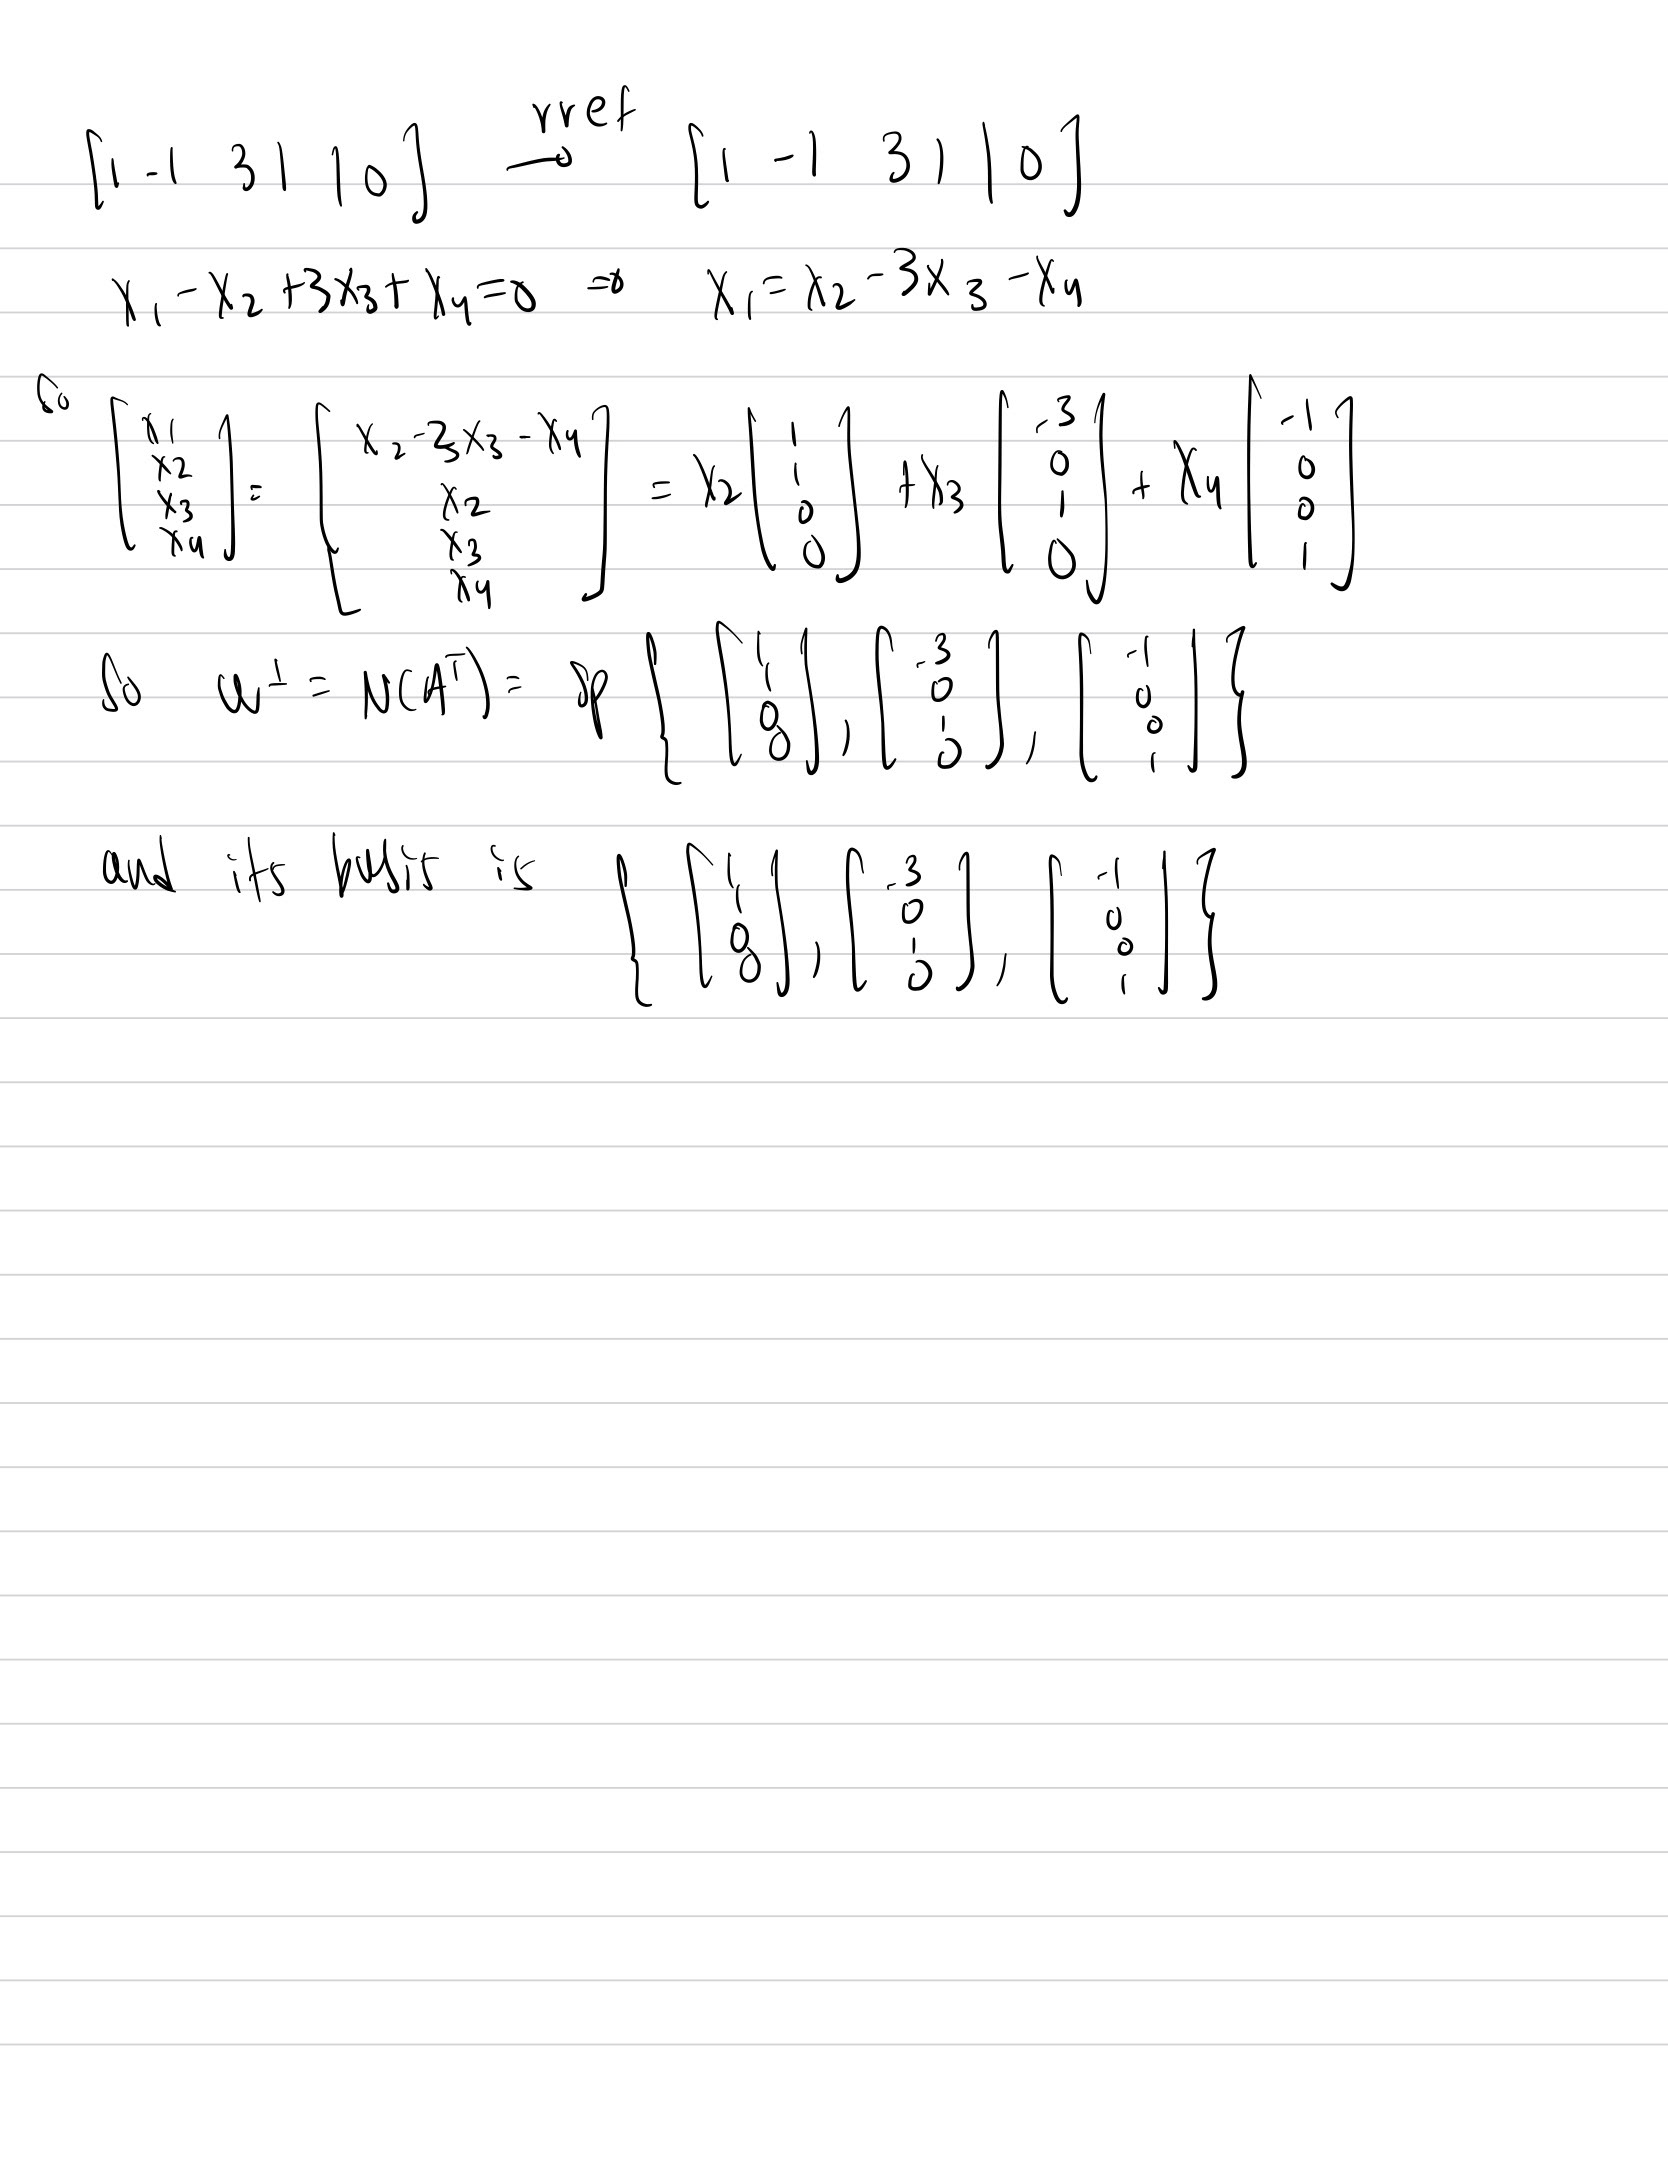 [1 -1 3 1 | 0] rref → [1 -1 3 1 | 0]
x₁ - x₂ + 3x₃ + x₄ = 0 ⇒ x₁ = x₂ - 3x₃ - x₄
So [x1 x2 x3 x4] = [x₂ - 3x₃ - x₄ x2 x3 x4] = x₂ [1 1 0 0] + x₃ [-3 0 1 0] + x₄ [-1 0 0 1]
So W^⊥ = N(A^T) = sp { [1 1 0 0], [-3 0 1 0], [-1 0 0 1] }
and its basis is { [1 1 0 0], [-3 0 1 0], [-1 0 0 1] }